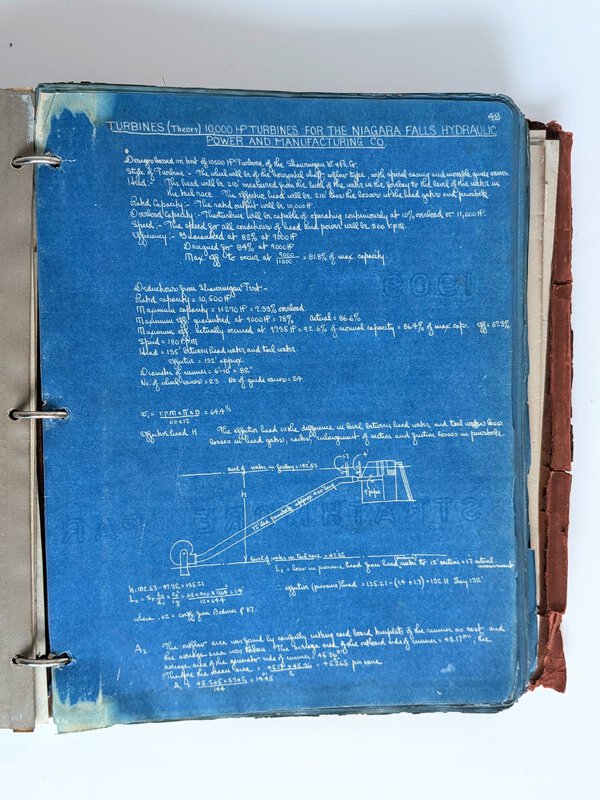 43
TURBINES (Theory) 10,000 HP TURBINES FOR THE NIAGARA FALLS HYDRAULIC
POWER AND MANUFACTURING CO.
Designs based on test of 10500 HP Turbine of the Shawinigan W & P. Co.
Style of Turbine:- The wheel will be of the horizontal shaft inflow type, with spiral casing and movable guide vanes.
Head:- The head will be 210' measured from the level of the water in the forebay to the level of the water in
the tail race. The effective head will be 210' less the losses at the head gates and penstock.
Rated Capacity:- The rated output will be 10,000 HP
Overload Capacity:- The turbine will be capable of operating continuously at 10% overload or 11,000 HP.
Speed:- The speed for all conditions of head and power will be 300 R.P.M.
Efficiency:- Guaranteed at 82% at 9000 HP
Designed for 84% at 9000 HP
Max. eff. to occur at 9000/11000 = 81.8% of max. capacity.
Deductions from Shawinigan Test:-
Rated capacity = 10,500 HP
Maximum capacity = 11270 HP = 7.33% overload.
Maximum eff. guaranteed at 9000 HP = 78% Actual = 86.6%
Maximum eff. actually occured at 9735 HP = 92.6% of normal capacity = 86.4% of max capac. eff = 87.3%
Speed = 180 R.P.M
Head = 135' between head water and tail water.
effective = 132' approx.
Diameter of runner = 6'-10" = 82"
No. of wheel vanes = 23 No of guide vanes = 24
W₁ = r.p.m × π × D / 60 × 12 = 64.4 '/s
Effective head H The effective head is the difference in level between head water and tail water less
losses in head gates, racks, enlargement of section and friction losses in penstock.
level of water in forebay = 182.53
h
12' dia. penstock approx 400' long
9' pipe
level of water in tail race = 47.32
h = 182.53 - 47.32 = 135.21
L₂ = loss in pressure head from head water to 12' section = 1.7 actual
measurement
∴ effective (pressure) head = 135.21 - (1.4 + 1.7) = 132.11 Say 132'
where .02 = coeff from Bodmer P 87.
A₂ The outflow area was found by carefully cutting card board templets of the runner as cast and
the average area was taken. The average area of the outboard side of runner = 45.17 □", the
average area of the generator side of runner = 45.36 □"
Therefore the mean area = 45.17 + 45.36 / 2 = 45.265 per vane
∴ A₂ = 45.265 × 23 × 2 / 144 = 14.45